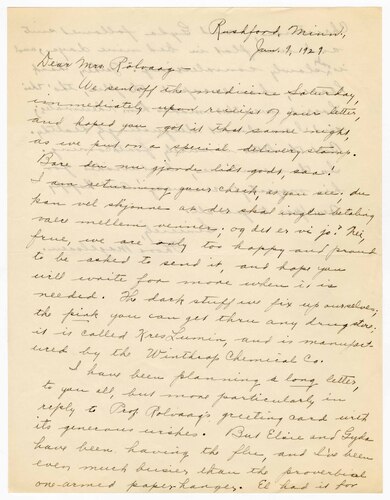 Rushford, Minn.,
Jan. 9, 1929.
Dear Mrs. Rölvaag:
We sent off the medicine Saturday,
immediately upon receipt of your letter,
and hoped you got it that same night,
as we put on a special delivery stamp.
Bare den nu gjorde lidt godt, saa!
I am returning your check, as you see; du
kan vel skjönne at der skal ingen betaling
være mellem venner; og det er vi jo? Nei,
frue, we are only too happy and proud
to be asked to send it, and hope you
will write for more when it is
needed. The dark stuff we fix up ourselves;
the pink you can get thru any drug store;
it is called KresLumin, and is manufact-
ured by the Winthrop Chemical Co.
I have been planning a long letter,
to you all, but more particularly in
reply to Prof. Rolvaag's greeting card with
its generous wishes. But Elsie and Gyda
have been having the flu, and I've been
even much busier than the proverbial
one-armed paperhanger. El had it for